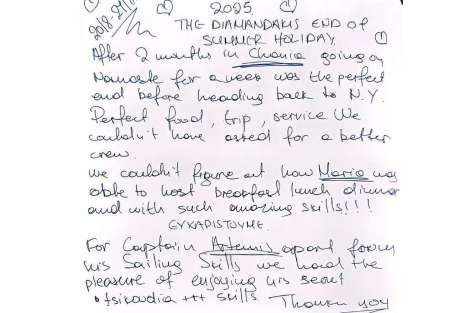 2025
THE DIAMANDAKIS END OF
SUMMER HOLIDAY
After 2 months in Chania going on
Namaste for a week was the perfect
end before heading back to N.Y.
Perfect food, trip, service We
couldn't have asked for a better
crew.
We couldn't figure out how Maria was
able to host breakfast lunch dinner
and with such amazing skills!!!
ΕΥΧΑΡΙΣΤΟΥΜΕ.
For Captain Artemis apart from
his Sailing Skills we had the
pleasure of enjoying his secret
tsikoudia +++ skills Thank you